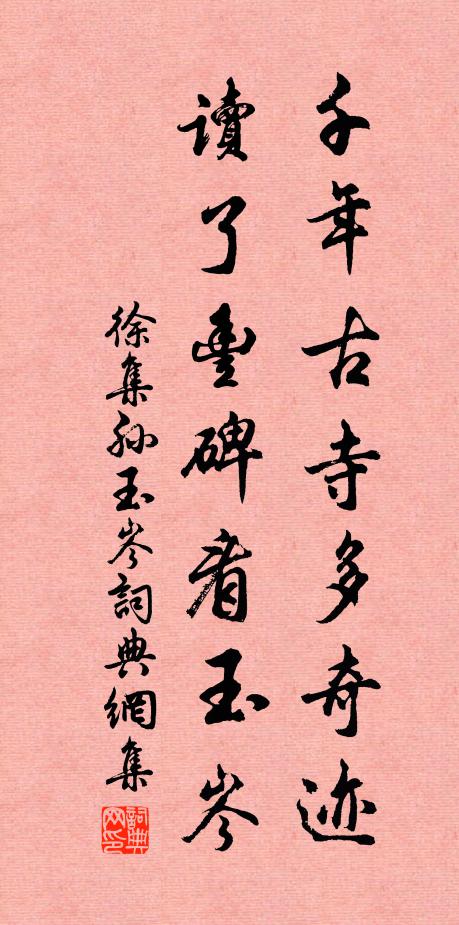 千年古寺多奇迹
讀了豊碑看玉岑
徐集孙玉岑詞典網集
詞典网印